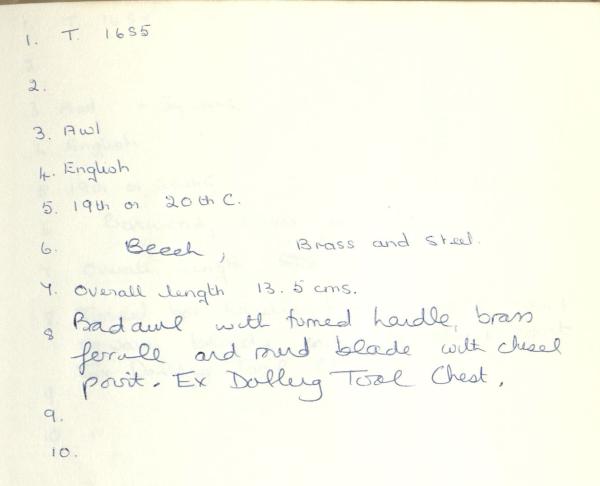 1. T. 1655
2.
3. Awl
4. English
5. 19th or 20th C.
6. Beech, Brass and Steel.
7. Overall length 13.5 cms.
8 Bradawl with turned handle, brass
ferrule and round blade with chisel
point. Ex Dolling Tool Chest.
9.
10.